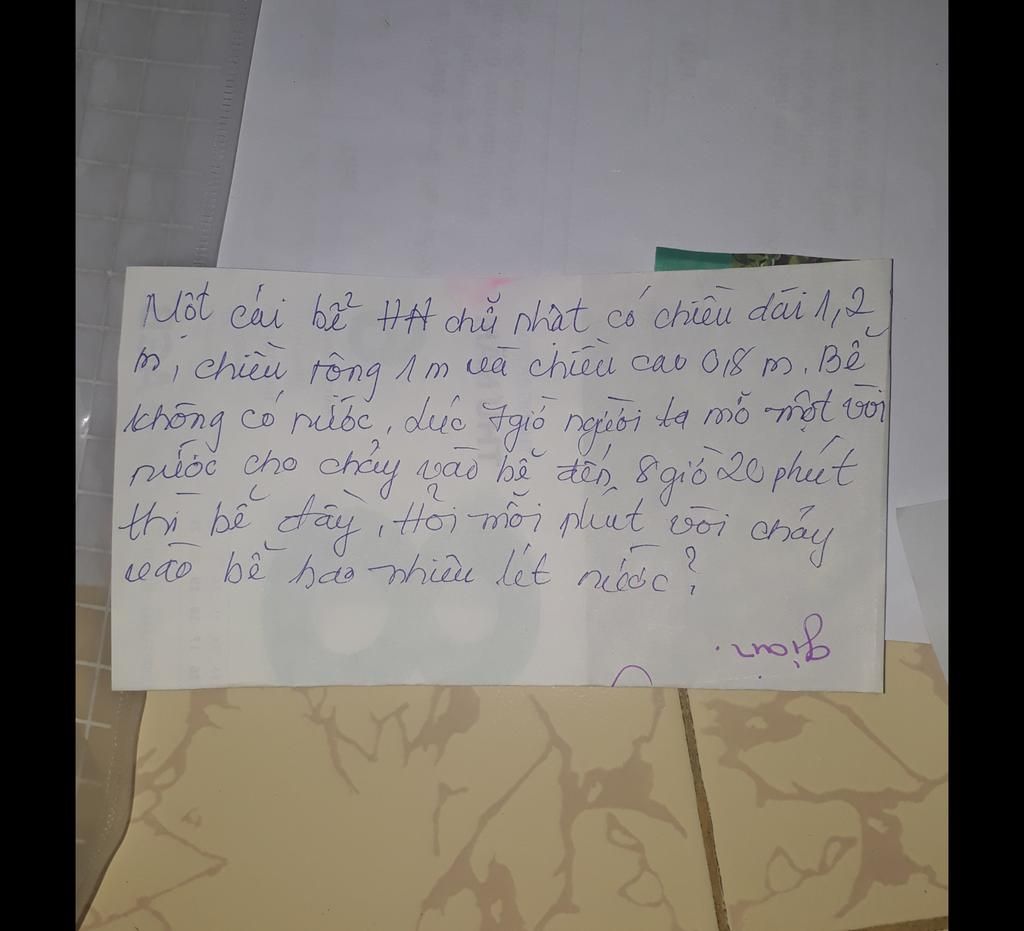 Một cái bể HH chữ nhật có chiều dài 1,2
m, chiều rộng 1m và chiều cao 0,8 m. Bể
không có nước, lúc 7giờ người ta mở một vòi
nước cho chảy vào bể đến 8giờ 20 phút
thì bể đầy, Hỏi mỗi phút vòi chảy
vào bể bao nhiêu lít nước?
gian.